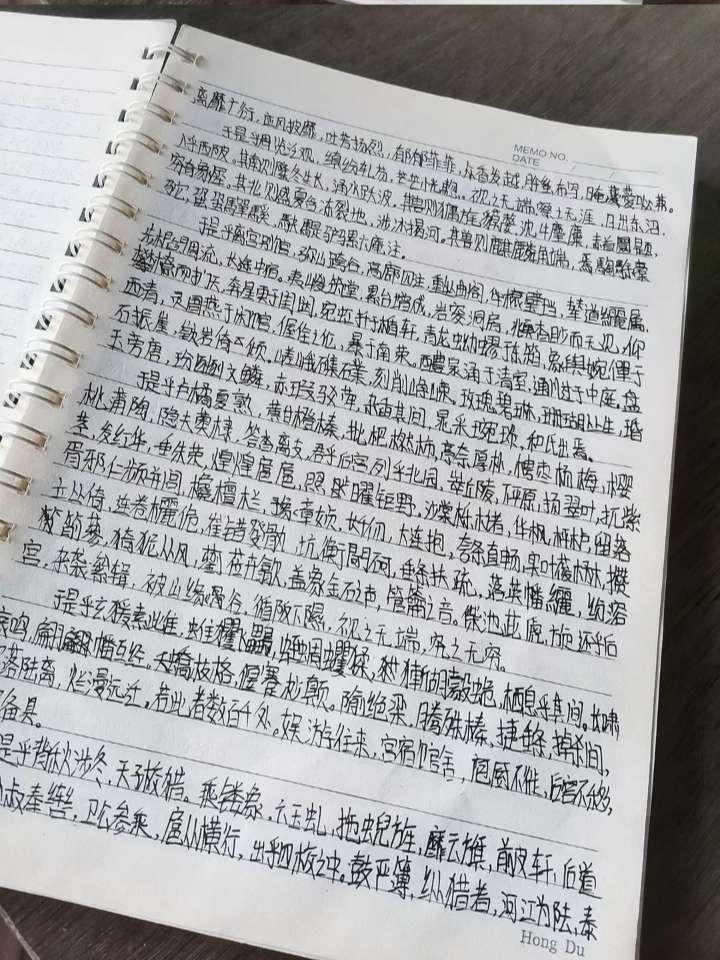 MEMO NO.
DATE / /
离靡广衍,应风披靡,吐芳扬烈,郁郁菲菲,众香发越,肸蚃布写,晻薆咇茀。
于是乎周览泛观,缜纷轧芴,芒芒恍忽。视之无端,察之无涯,日出东沼,
入乎西陂。其南则隆冬生长,涌水跃波。其兽则 旄 牦,沈牛麈麋,赤首圜题,
穷奇象犀。其北则盛夏含冻裂地,涉冰揭河。其兽则麒麟角端,
橐驼,蛩蛩驒騱,駃騠驴骡。
于是乎离宫别馆,弥山跨谷,高廊四注,重坐曲阁,华榱璧珰,辇道纚属,
步櫩周流,长途中宿。夷嵕筑堂,累台增成,岩窔洞房,頫杳眇而无见,仰
攀橑而扪天,奔星更于闺闼,宛虹扦于楯轩,青龙蚴蟉于东箱,象舆婉僤于
西清,灵圄燕于闲馆,偓佺之伦,暴于南荣。醴泉涌于清室,通川过于中庭。盘
石振崖,嵚岩倚倾,嵯峨 ,刻削峥嵘。玫瑰碧琳,珊瑚丛生,瑉
玉旁唐,玢豳文鳞,赤瑕驳荦,杂臿其间,晁采琬琰,和氏出焉。
于是乎卢橘夏熟,黄甘橙楱,枇杷橪柿,亭奈厚朴,梬枣杨梅,樱
桃蒲陶,隐夫薁棣,答沓离支,罗乎后宫,列乎北园,丘陵,下平原,扬翠叶,扤紫
茎,发红华,垂朱荣,煌煌扈扈,照曜钜野。沙棠栎槠,华枫枰栌,留落
胥邪,仁频并闾,欃檀木兰,豫章女贞,长千仞,大连抱,夸条直畅,实叶葰楙,攒
立丛倚,连卷欐佹,崔错癹骫,坑衡閜砢,垂条扶疏,落英幡纚,纷溶
萷蔘,猗狔从风,藰莅卉歙,盖象金石之声,管籥之音。柴池茈虒,旋还乎后
宫,杂袭絫辑,被山缘谷,循阪下隰,视之无端,究之无穷。
于是乎玄猨素雌,蜼玃飞蠝,蛭蜩蠼猱,獑胡豰蛫,栖息乎其间。长啸
哀鸣,翩幡互经,夭蟜枝格,偃蹇杪颠。隃绝梁,腾殊榛,捷垂条,掉希间,
落陆离,烂漫远迁。若此者数百千处。娱游往来,宫宿馆舍,庖厨不徙,后宫不移,
备具。
是乎背秋涉冬,天子校猎。乘镂象,六玉虬,拖蜺旌,靡云旗,前皮轩,后道
叔奉辔,卫公参乘,扈从横行,出乎四校之中。鼓严簿,纵猎者,河江为阹,泰
Hong Du